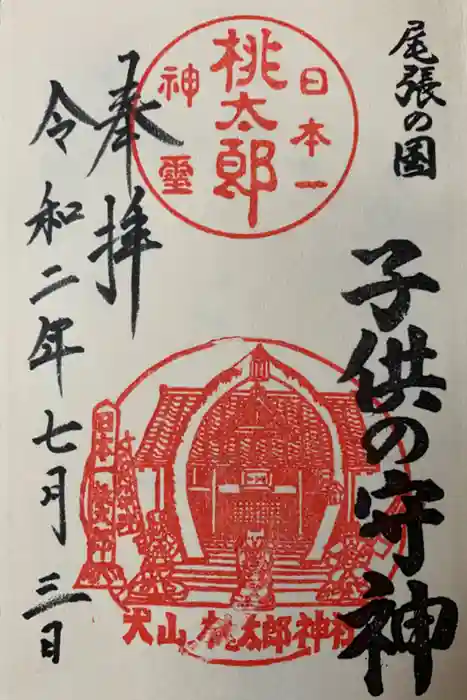 尾張の国
子供の守神
日本一
桃太郎
神霊
奉拝
令和二年七月三日
日本一桃太郎
犬山桃太郎神社